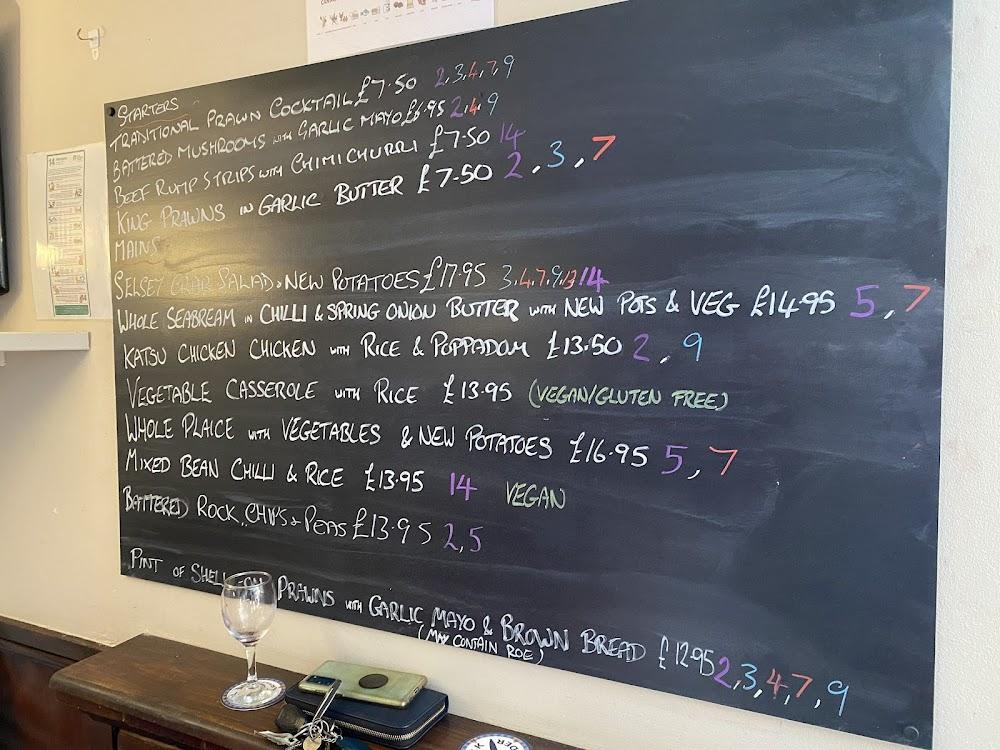 STARTERS
TRADITIONAL PRAWN COCKTAIL £7.50 2,3,4,7,9
BATTERED MUSHROOMS WITH GARLIC MAYO £6.95 2,4,9
BEEF RUMP STRIPS WITH CHIMICHURRI £7.50 14
KING PRAWNS IN GARLIC BUTTER £7.50 2,3,7
MAINS
SELSEY CRAB SALAD & NEW POTATOES £17.95 3,4,7,9,13,14
WHOLE SEABREAM IN CHILLI & SPRING ONION BUTTER WITH NEW POTS & VEG £14.95 5,7
KATSU CHICKEN CHICKEN WITH RICE & POPPADOM £13.50 2,9
VEGETABLE CASSEROLE WITH RICE £13.95 (VEGAN/GLUTEN FREE)
WHOLE PLAICE WITH VEGETABLES & NEW POTATOES £16.95 5,7
MIXED BEAN CHILLI & RICE £13.95 14 VEGAN
BATTERED ROCK, CHIPS & PEAS £13.95 2,5
PINT OF SHELL-ON PRAWNS WITH GARLIC MAYO & BROWN BREAD £12.95 2,3,4,7,9
(MAY CONTAIN ROE)